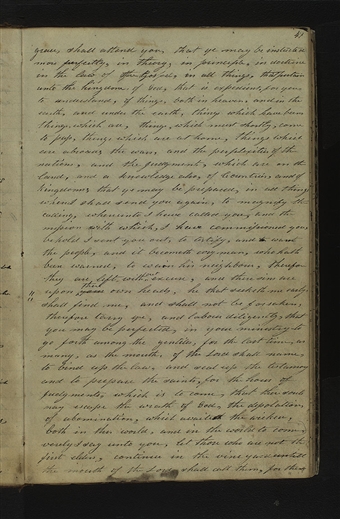 41
grace shall attend you, that ye may be instructed
more perfectly, in theory, in principle, in doctrine
in the law of the gospel, in all things, that pertain
unto the kingdom of God, that is expedient for you
to understand, of things, both in heaven, and in the
earth, and under the earth, things which have been
things which are, things which must shortly come
to pass, things which are at home, things which
are abroad, the wars, and the perplexities of the
nations, and the judgments, which are on the
land, and a knowledge also, of countries, and of
kingdoms, that ye may be prepared, in all things
when I shall send you again, to magnify the
calling, whereunto I have called you, and the
mission with which I have commissioned you
behold I sent you out, to testify, and warn
the people, and it becometh every man, who hath
been warned, to warn his neighbour, therefore
they are left without excuse, and their sins are
upon their own heads, he that seeketh me early
11 shall find me, and shall not be forsaken,
therefore tarry ye, and labour diligently, that
you may be perfected, in your ministry to
go forth among the gentiles, for the last time, as
many, as the mouth, of the Lord shall name,
to bind up the law, and seal up the testimony
and to prepare the saints, for the hour of
judgments, which is to come, that their souls
may escape the wrath of God, the desolation,
of abomination, which await the wicked,
both in the world, and in the world to come,
verely I say unto you, let those who are not the
first elders, continue in the vineyard untill
the mouth of the Lord shall call them, for their